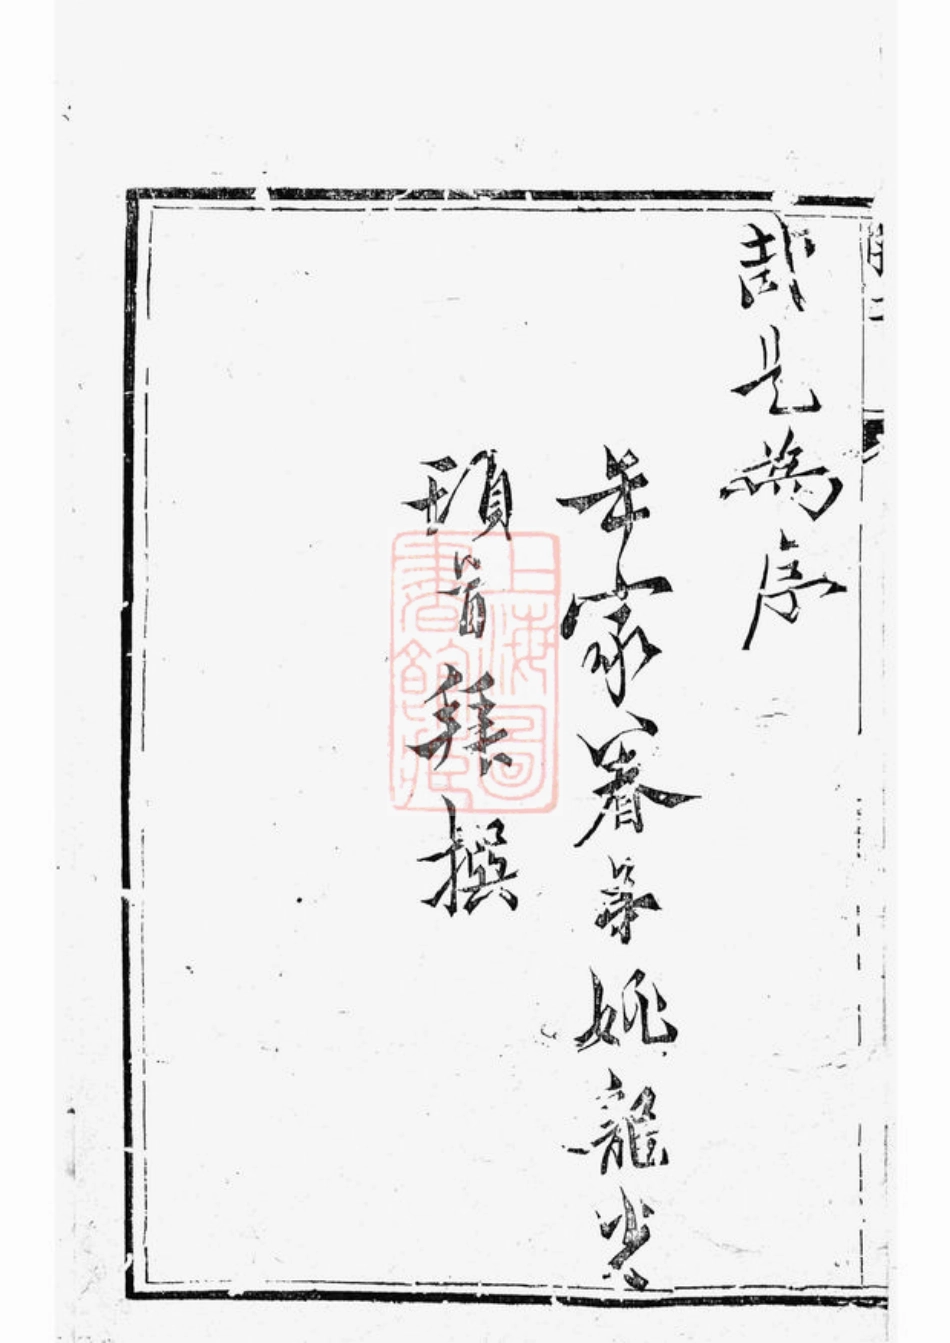 哉是為序
年家眷弟姚龍光
頓首拜撰
上海圖
書館藏